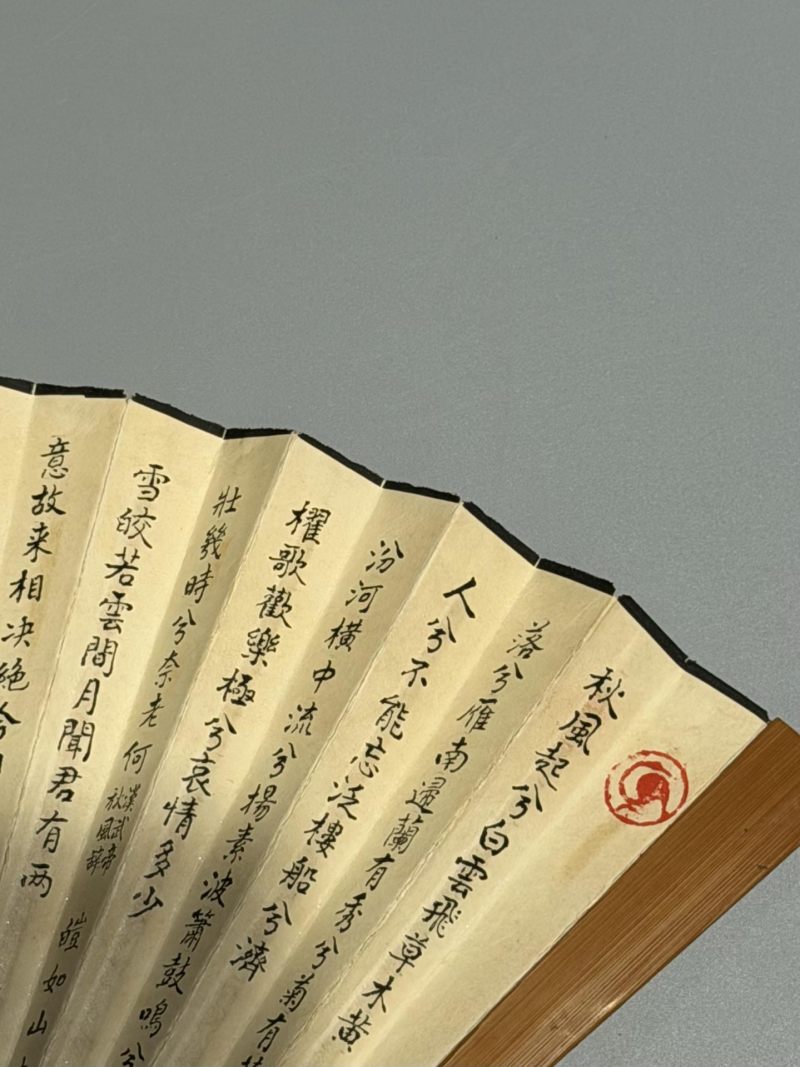 秋風起兮白雲飛草木黃
落兮雁南歸蘭有秀兮菊有
人兮不能忘泛樓船兮濟
汾河橫中流兮揚素波簫鼓鳴兮
櫂歌歡樂極兮哀情多少
壯幾時兮奈老何
漢武帝
秋風辭
皚如山
雪皎若雲間月聞君有兩
意故来相决絶今